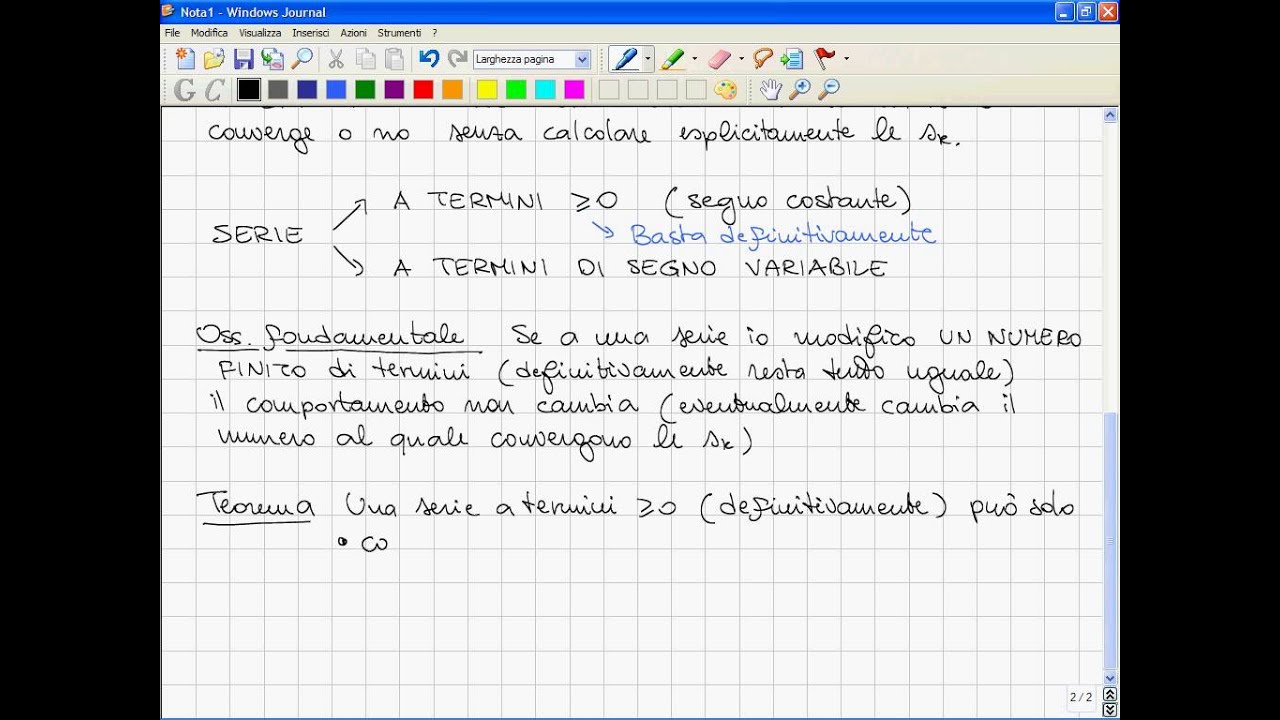 Nota1 - Windows Journal
File Modifica Visualizza Inserisci Azioni Strumenti ?
Larghezza pagina
G C
converge o no senza calcolare esplicitamente le sk.
A TERMINI ≥0 (segno costante)
SERIE
Basta definitivamente
A TERMINI DI SEGNO VARIABILE
Oss. fondamentale Se a una serie io modifico UN NUMERO
FINITO di termini (definitivamente resta tutto uguale)
il comportamento non cambia (eventualmente cambia il
numero al quale convergono le sk)
Teorema Una serie a termini ≥0 (definitivamente) può solo
• co
2 / 2